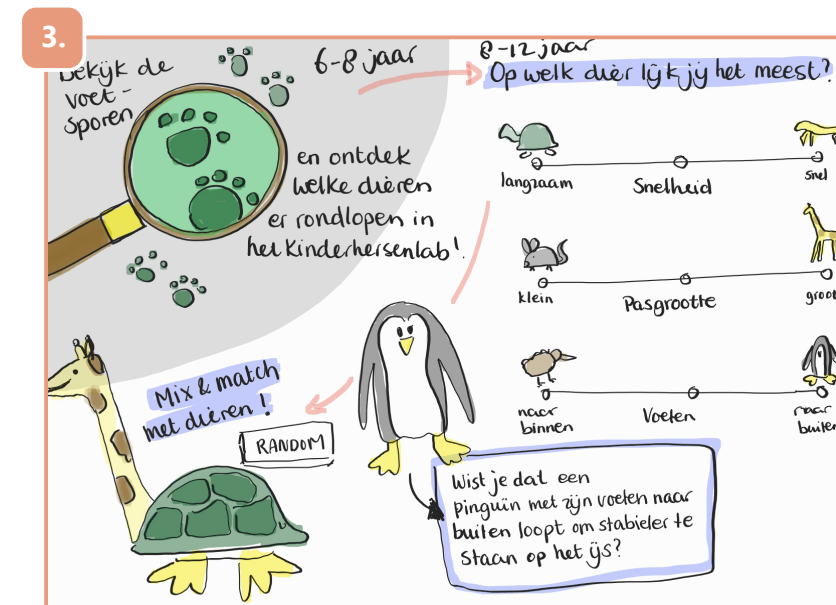 3.
Bekijk de
voet-
sporen
6-8 jaar
en ontdek
welke dieren
er rondlopen in
het Kinderhersenlab!
8-12 jaar
Op welk dier lijk jij het meest?
langzaam
Snelheid
snel
klein
Pasgrootte
groot
naar
binnen
Voeten
naar
buiten
Mix & match
met dieren!
RANDOM
Wist je dat een
pinguïn met zijn voeten naar
buiten loopt om stabieler te
staan op het ijs?